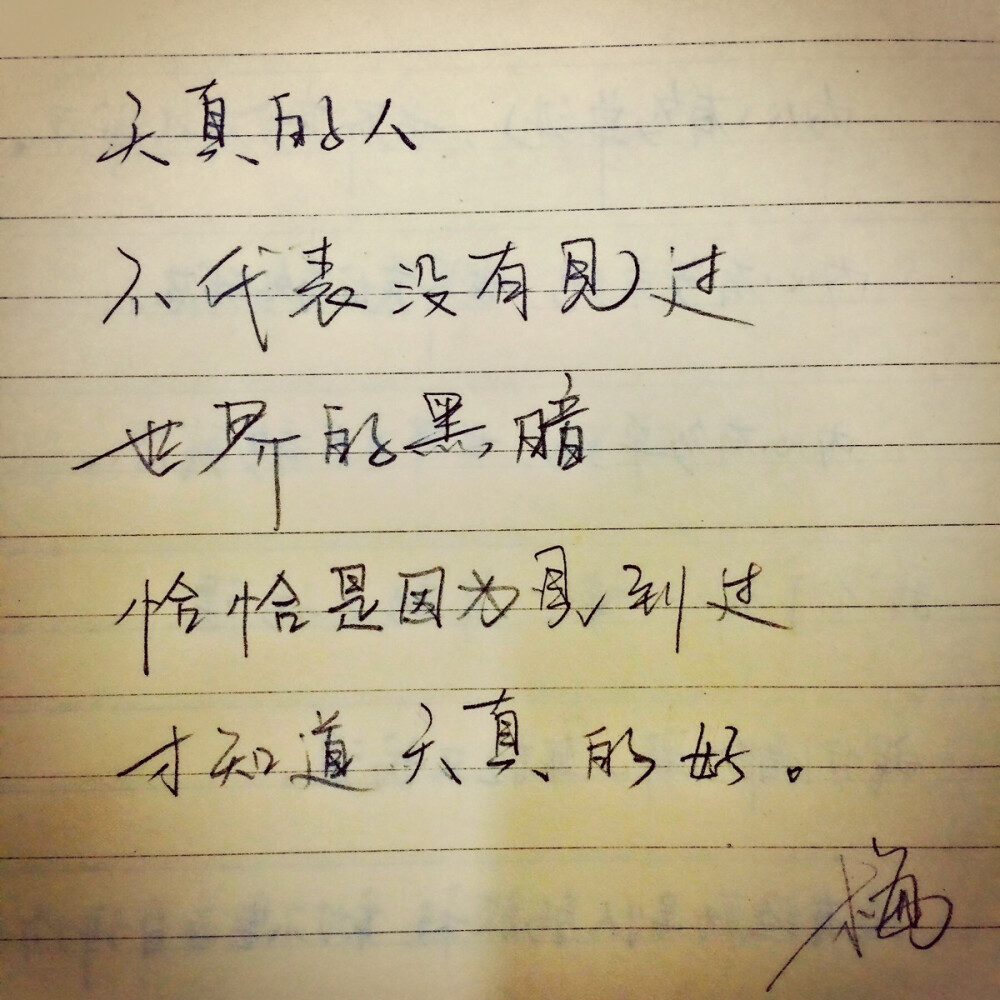 天真的人
不代表没有见过
世界的黑暗
恰恰是因为见到过
才知道天真的好。
梅